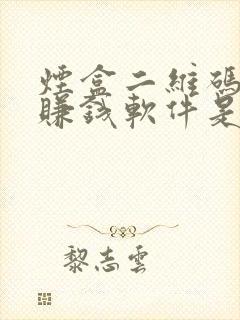 煙盒二維碼
賺錢軟件是
黎志雲